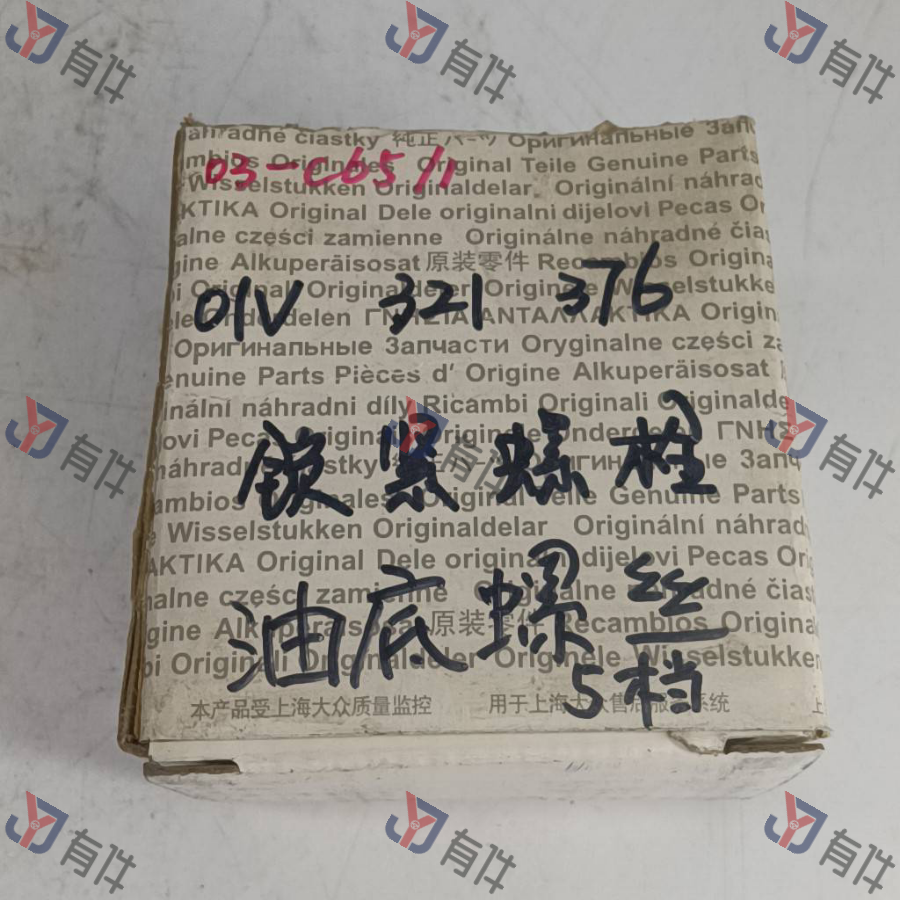 有件 有件 有件
áhradné čiastky 純正パーツ Оригинальные Запч
03-C65/1
mbios Originales Original Teile Genuine Parts
Wisselstukken Originaldelar Originální náhrad
KTIKA Original Dele originalni dijelovi Pecas Or
alne części zamienne Originálne náhradné čias
gine Alkuperäisosat 原装零件 Recambios Origina
01V 321 376
bi Originali Originaldeler Originele Wisselstukke
ele Onderdelen ΓΝΗΣΙΑ ΑΝΤΑΛΛΑΚΤΙΚΑ Origin
Оригинальные Запчасти Oryginalne części za
enuine Parts Pièces d' Origine Alkuperäisosat
inální náhradni díly Ricambi Originali Originalde
有件 有件 有件
ovi Pecas Origina Originele Onderdelen ΓΝΗΣ
锁紧螺栓
náhradné čiastky 純正パーツ Оригинальные Запч
ambios Originales Original Teile Genuine Parts
e Wisselstukken Originaldelar Originální náhrad
AKTIKA Original Dele originalni dijelovi Pecas Ori
nalne części zamienne Originálne náhradné čias
油底螺丝
gine Alkuperäisosat 原装零件 Recambios Origina
bi Originali Originaldeler Originele Wisselstukken
5档
本产品受上海大众质量监控 用于上海大众售后服务系统 上
有件 有件 有件